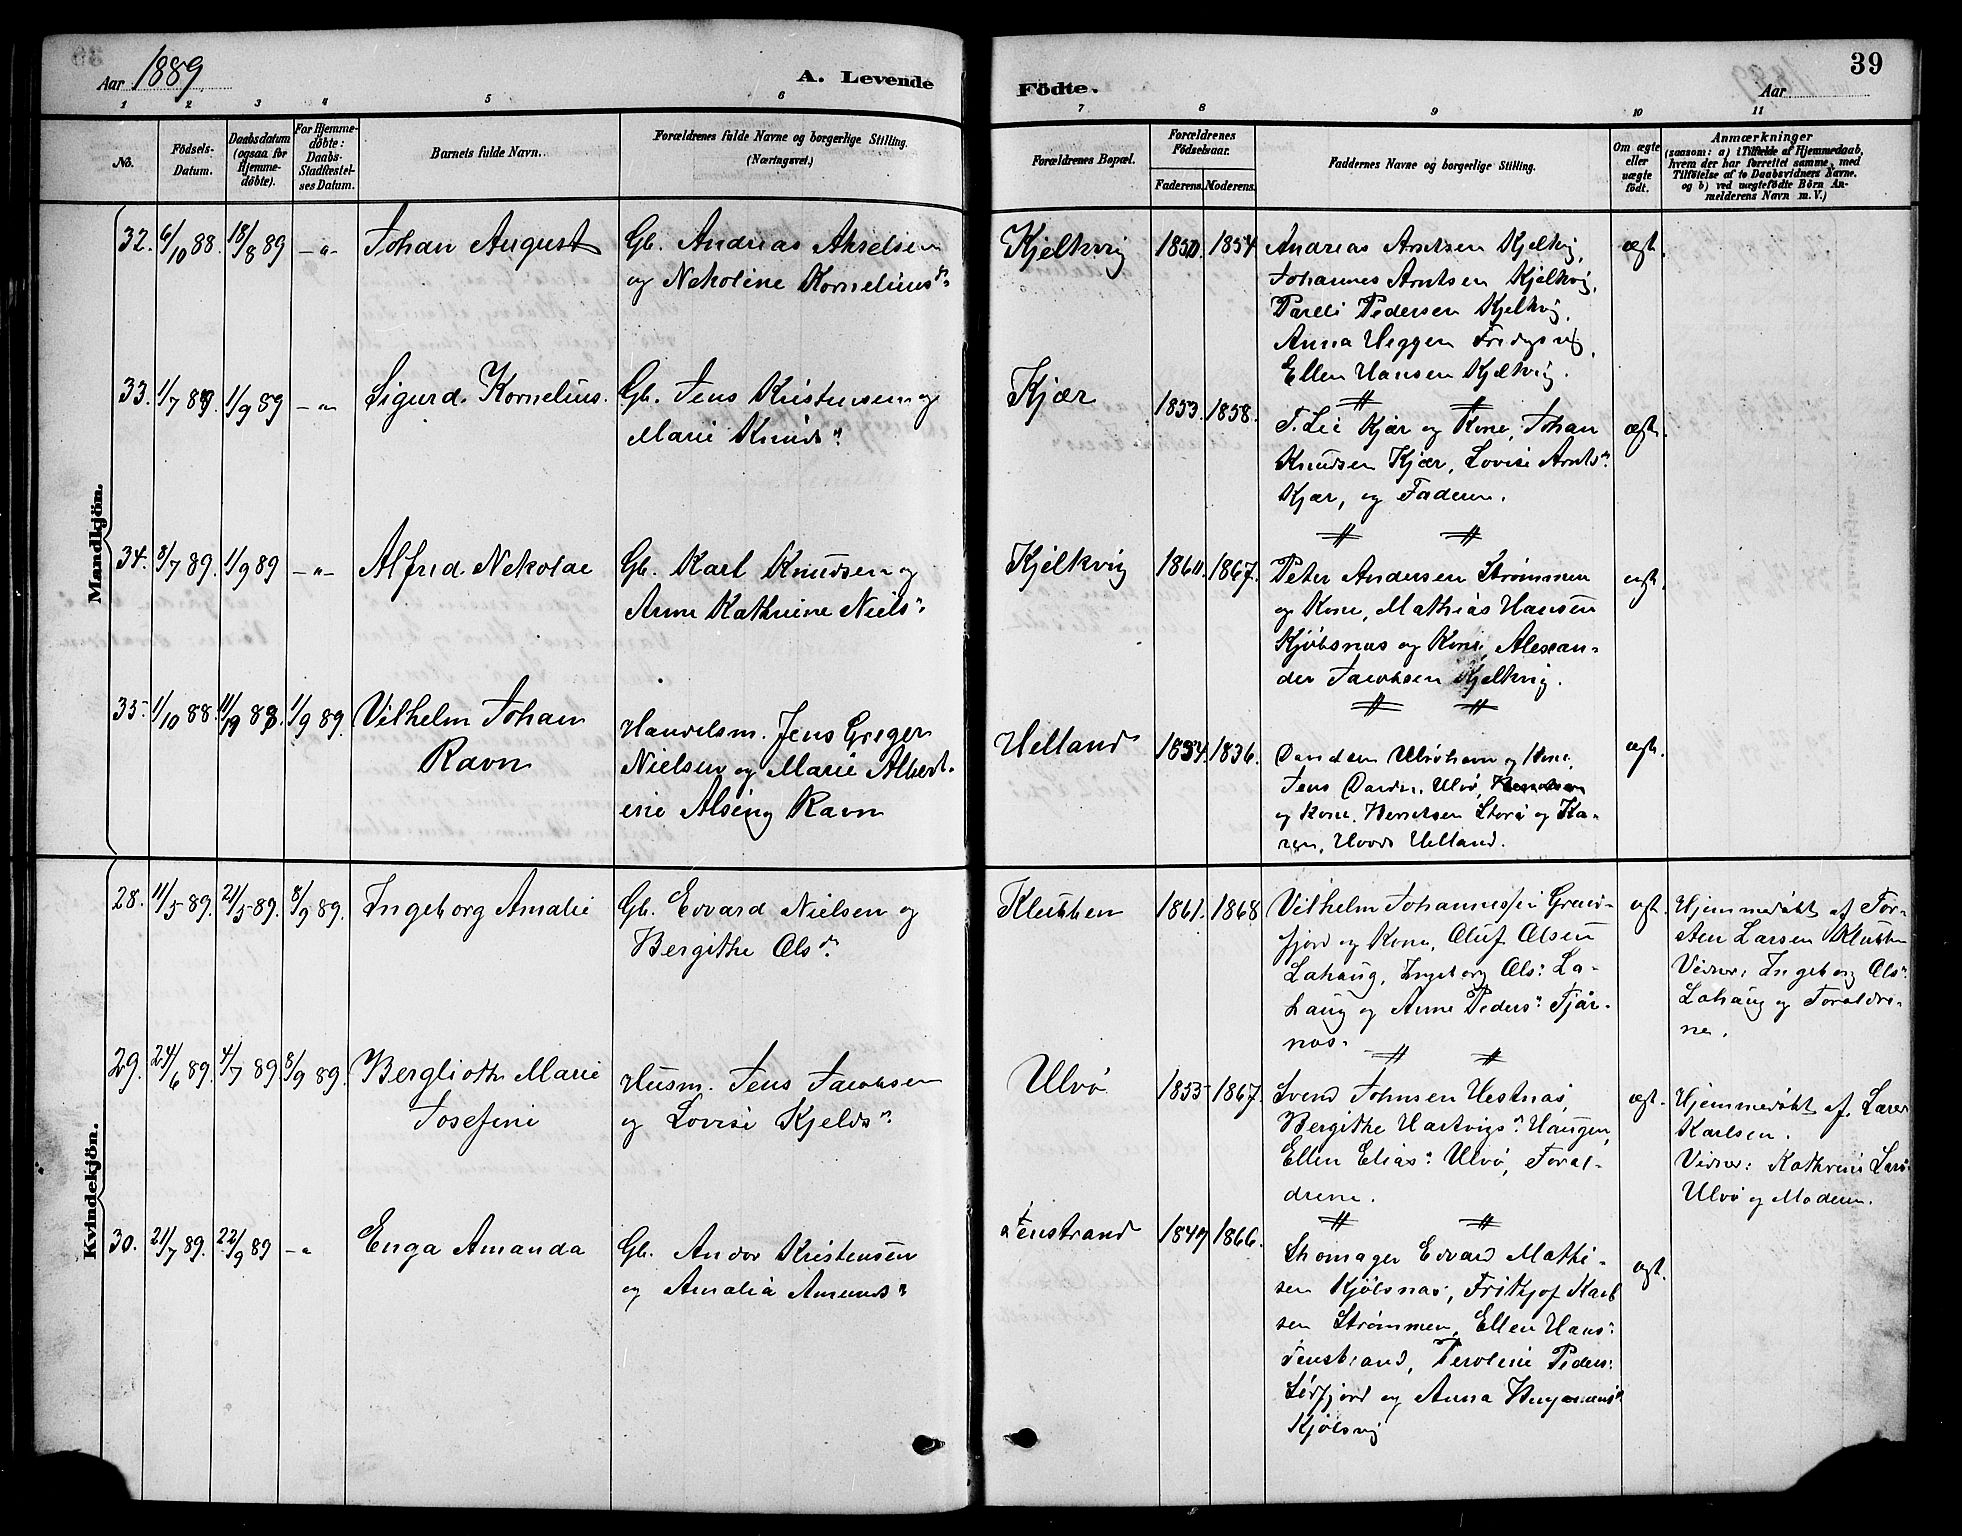 Aar 1889.
A. Levende
Födte.
39
Aar
1 2 3 4 5 6 7 8 9 10 11
No.
Födsels-
Datum.
Daabsdatum
(ogsaa for
Hjemme-
döbte).
For Hjemme-
döbte:
Daabs-
Stadfæstel-
ses Datum.
Barnets fulde Navn.
Forældrenes fulde Navne og borgerlige Stilling.
(Næringsvei.)
Forældrenes Bopæl.
Forældrenes
Födselsaar.
Faderens. Moderens.
Faddernes Navne og borgerlige Stilling.
Om ægte
eller
uægte
födt.
Anmærkninger
(saasom: a) i Tilfælde af Hjemmedaab,
hvem der har forrettet samme, med
Tilföielse af to Daabsvidners Navne.
og b) ved uægtefödte Börn An-
melderens Navn m. V.)
Mandkjön.
32. 6/10 88. 18/8 89 -"- Johan August
Gb. Andreas Akselsen
og Nekoline Kornelius dr
Kjelkvig 1850. 1854
Andreas Arntsen Kjelkvig,
Johannes Arntsen Kjelkvig,
Pareli Pedersen Kjelkvig,
Anna Heggen
Ellen Hansen Kjelkvig.
ægt.
33. 1/7 89. 1/9 89 -"- Sigurd Kornelius.
Gb. Jens Kristensen og
Marie Knuds dr
Kjær 1853. 1858.
J. Lie Kjær og Kone, Johan
Knudsen Kjær, Lovise Arnts dr
Kjær, og Faderen.
ægt.
34. 8/7 89. 1/9 89 -"- Alfred Nekolai
Gb. Karl Knudsen og
Anne Kathrine Niels dr
Kjelkvig 1860. 1867.
Peter Andersen Strømmen
og Kone, Mathias Hansen
Kjølsnas og Kone, Alexan-
der Jacobsen Kjelkvig.
ægt.
35. 1/10 88. 88. 1/9 89. Vilhelm Johan
Ravn
Handelsm. Jens Greger
Nielsen og Marie Albert-
ine Alsing Ravn
Helland 1834. 1836.
Ulvøhavn og Kone,
Jens Ulvø,
og Kone, Storø og Ka-
ren, Helland.
ægt.
Kvindekjön.
28. 11/5 89. 21/5 89. 8/9 89. Ingeborg Amalie
Gb. Edvard Nielsen og
Bergithe Ols dr
Klubben 1861. 1868
Vilhelm Johannesen
fjord og Kone, Oluf Olsen
Lahaug, Ingeborg Ols: La-
haug og Anne Peders dr Tjær-
nas.
ægt.
Hjemmedøbt af Tor-
sten Larsen Klubben
Vidner: Ingeborg Ols dr
Lahaug og Foraldre-
ne.
29. 24/6 89. 4/7 89 8/9 89. Bergliothe Marie
Josefine
Husm. Jens Jacobsen
og Lovise Kjelds dr
Ulvø 1855 1867.
Svend Johnsen Hestnas,
Bergithe Hartvigs dr Haugen,
Ellen Elias: Ulvø, Foral-
drene.
ægt.
Hjemmedøbt af Lærer
Karlsen.
Vidner: Kathrine Lars
Ulvø og Moderen.
30. 21/7 89. 22/9 89 -"- Enga Amanda
Gb. Andor Kristensen
og Amalia Amunds dr
Finstrand 1849 1866.
Skomager Edvard Mathi-
sen Kjølsnas, Frithjof Karl
sen Strømmen, Ellen Hans:
Finstrand, Peroline Peders:
Sørfjord og Anna
Kjølsvig
ægt.